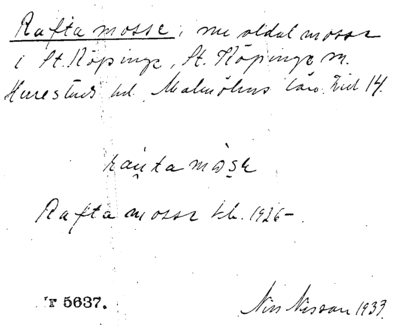 Rafta mosse, nu odlad mosse
i St. Köpinge, St. Köpinge sn.
Herrestads hd. Malmöhus län.
mosse
Rafta mosse kb. 1926-
T 5637. Nils Nilsson 1933